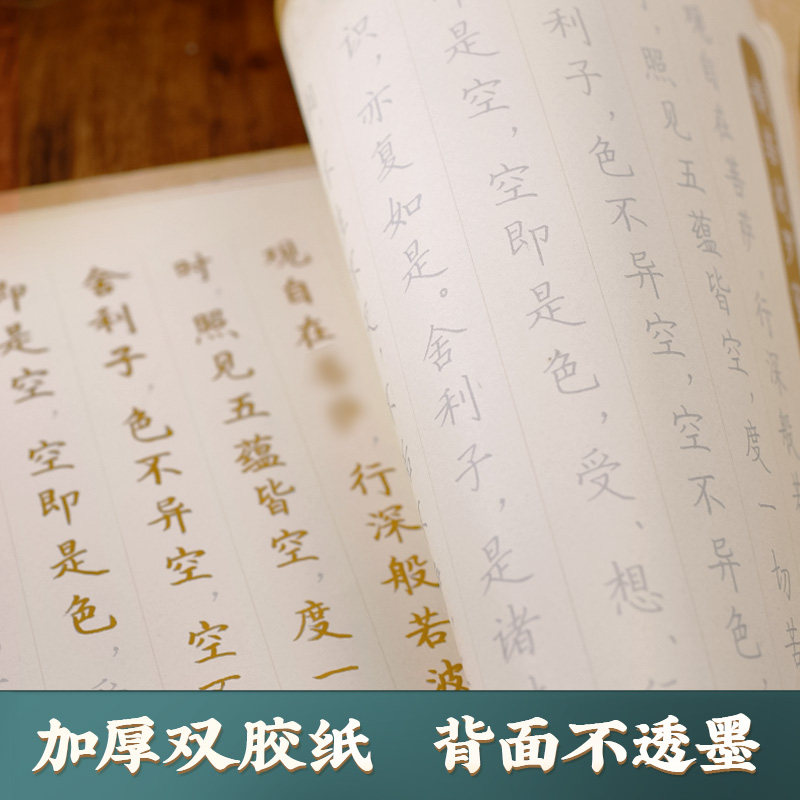 观自在菩萨，行深般若
，照见五蕴皆空，度一切苦
利子，色不异空，空不异色，
是空，空即是色，受、想、
识，亦复如是。舍利子，是诸
观自在，行深般若波
时，照见五蕴皆空，度一
舍利子，色不异空，空不
即是空，空即是色，
加厚双胶纸 背面不透墨